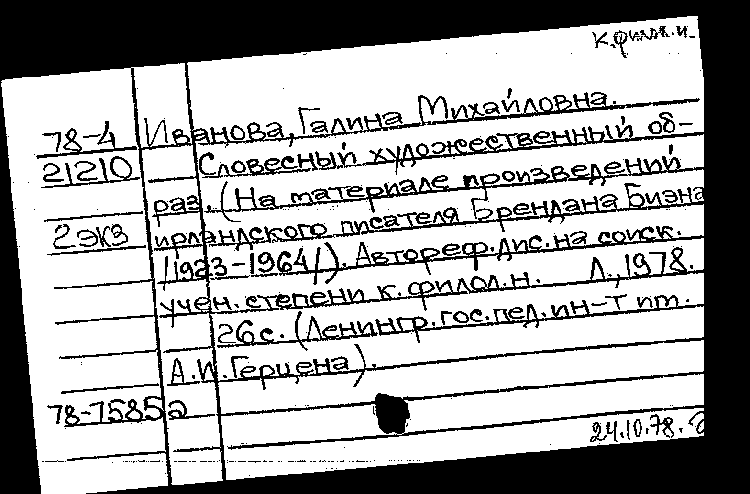 к.филол.н.
78-4 Иванова, Галина Михайловна.
21210 Словесный художественный об-
раз. (На материале произведений
2 экз ирландского писателя Брендана Биэна
/1923-1964/). Автореф.дис.на соиск.
учен.степени к.филол.н. Л.,1978.
26с. (Ленингр.гос.пед.ин-т им.
А.И.Герцена).
78-7585а
24.10.78.